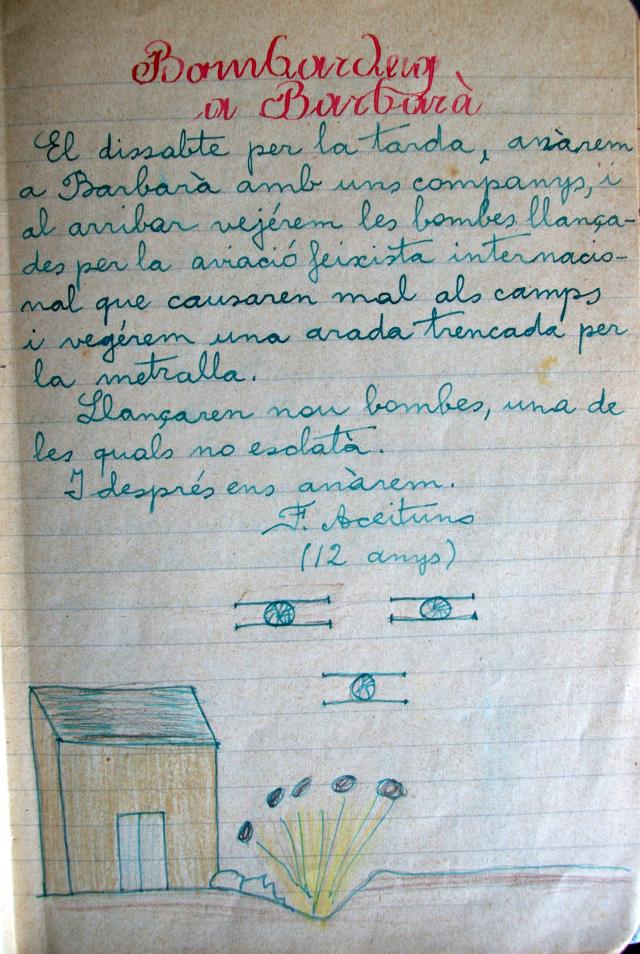 Bombardeig
a Barbarà
El dissabte per la tarda, anàrem
a Barbarà amb uns companys, i
al arribar vejérem les bombes llança-
des per la aviació feixista internacio-
nal que causaren mal als camps
i vegérem una arada trencada per
la metralla.
Llançaren nou bombes, una de
les quals no esclatà.
I després ens anàrem.
F. Aceituno
(12 anys)